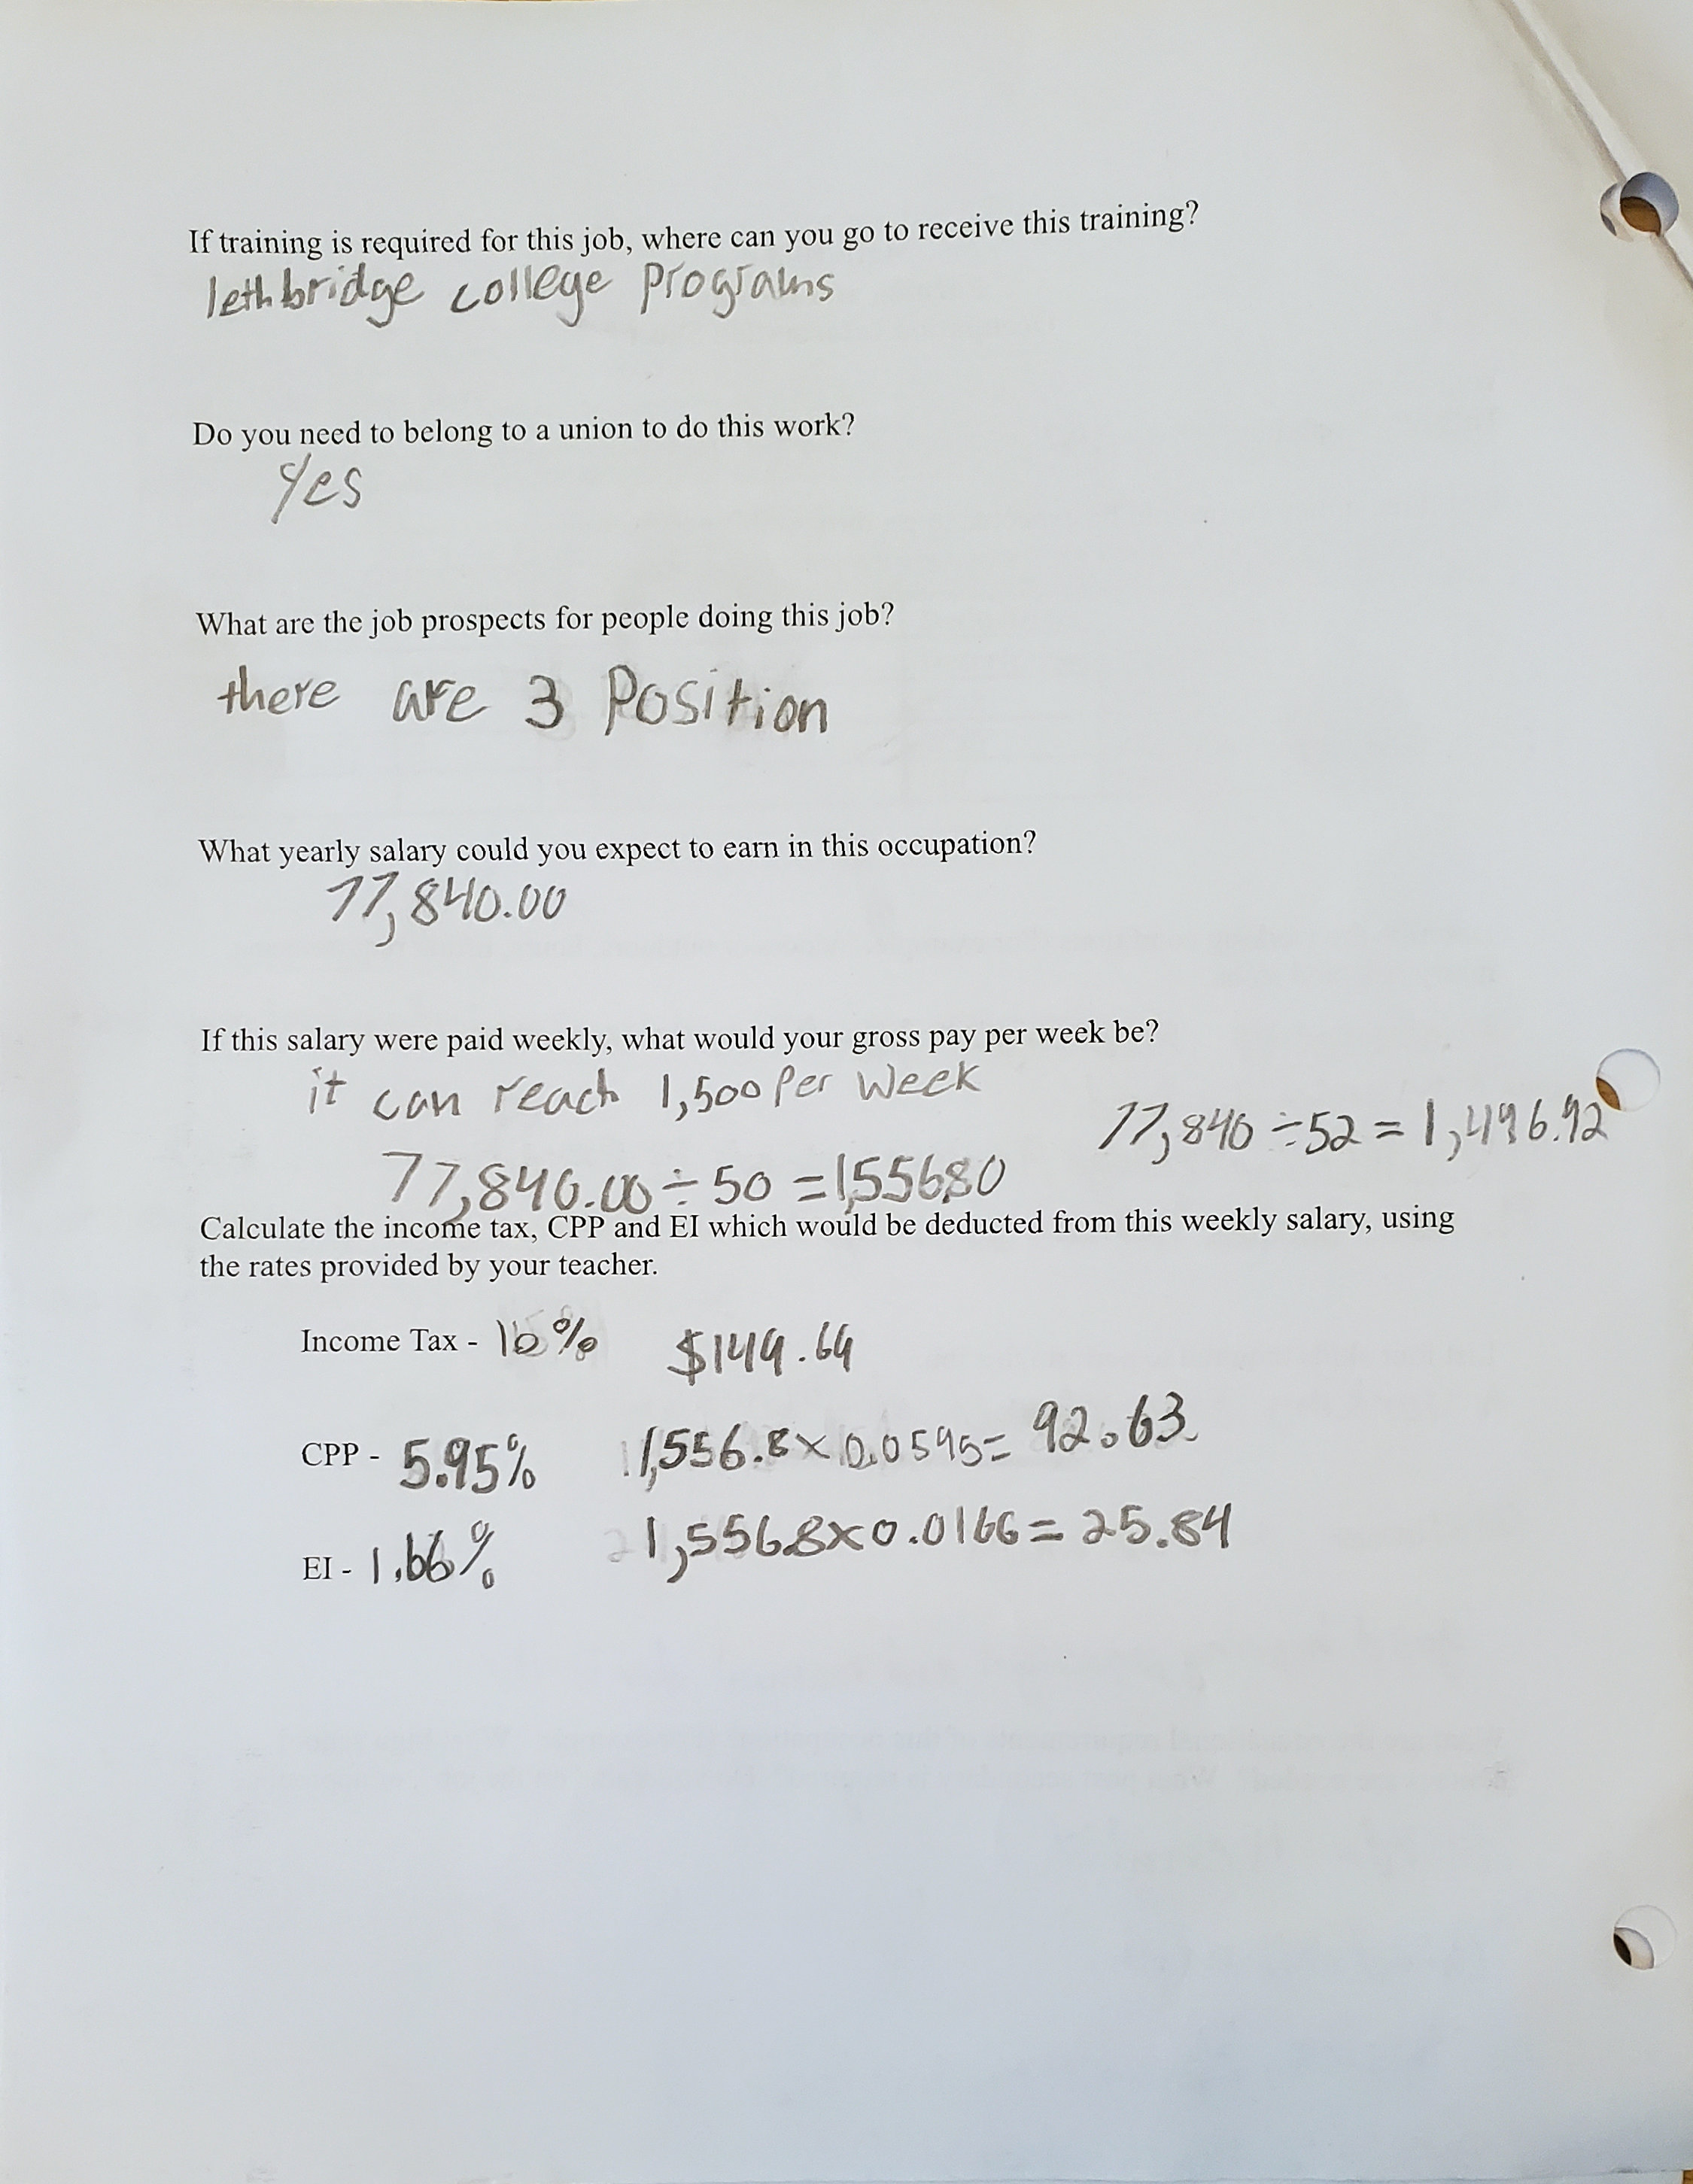 If training is required for this job, where can you go to receive this training?
lethbridge college programs
Do you need to belong to a union to do this work?
Yes
What are the job prospects for people doing this job?
there are 3 Position
What yearly salary could you expect to earn in this occupation?
77,840.00
If this salary were paid weekly, what would your gross pay per week be?
it can reach 1,500 Per Week
77,840 ÷ 52 = 1,496.92
77,840.00 ÷ 50 = 1,556.80
Calculate the income tax, CPP and EI which would be deducted from this weekly salary, using
the rates provided by your teacher.
Income Tax - 10% $149.69
CPP - 5.95% 1,556.8 x 0.0595 = 92.63
EI - 1.66% 1,556.8 x 0.0166 = 25.84